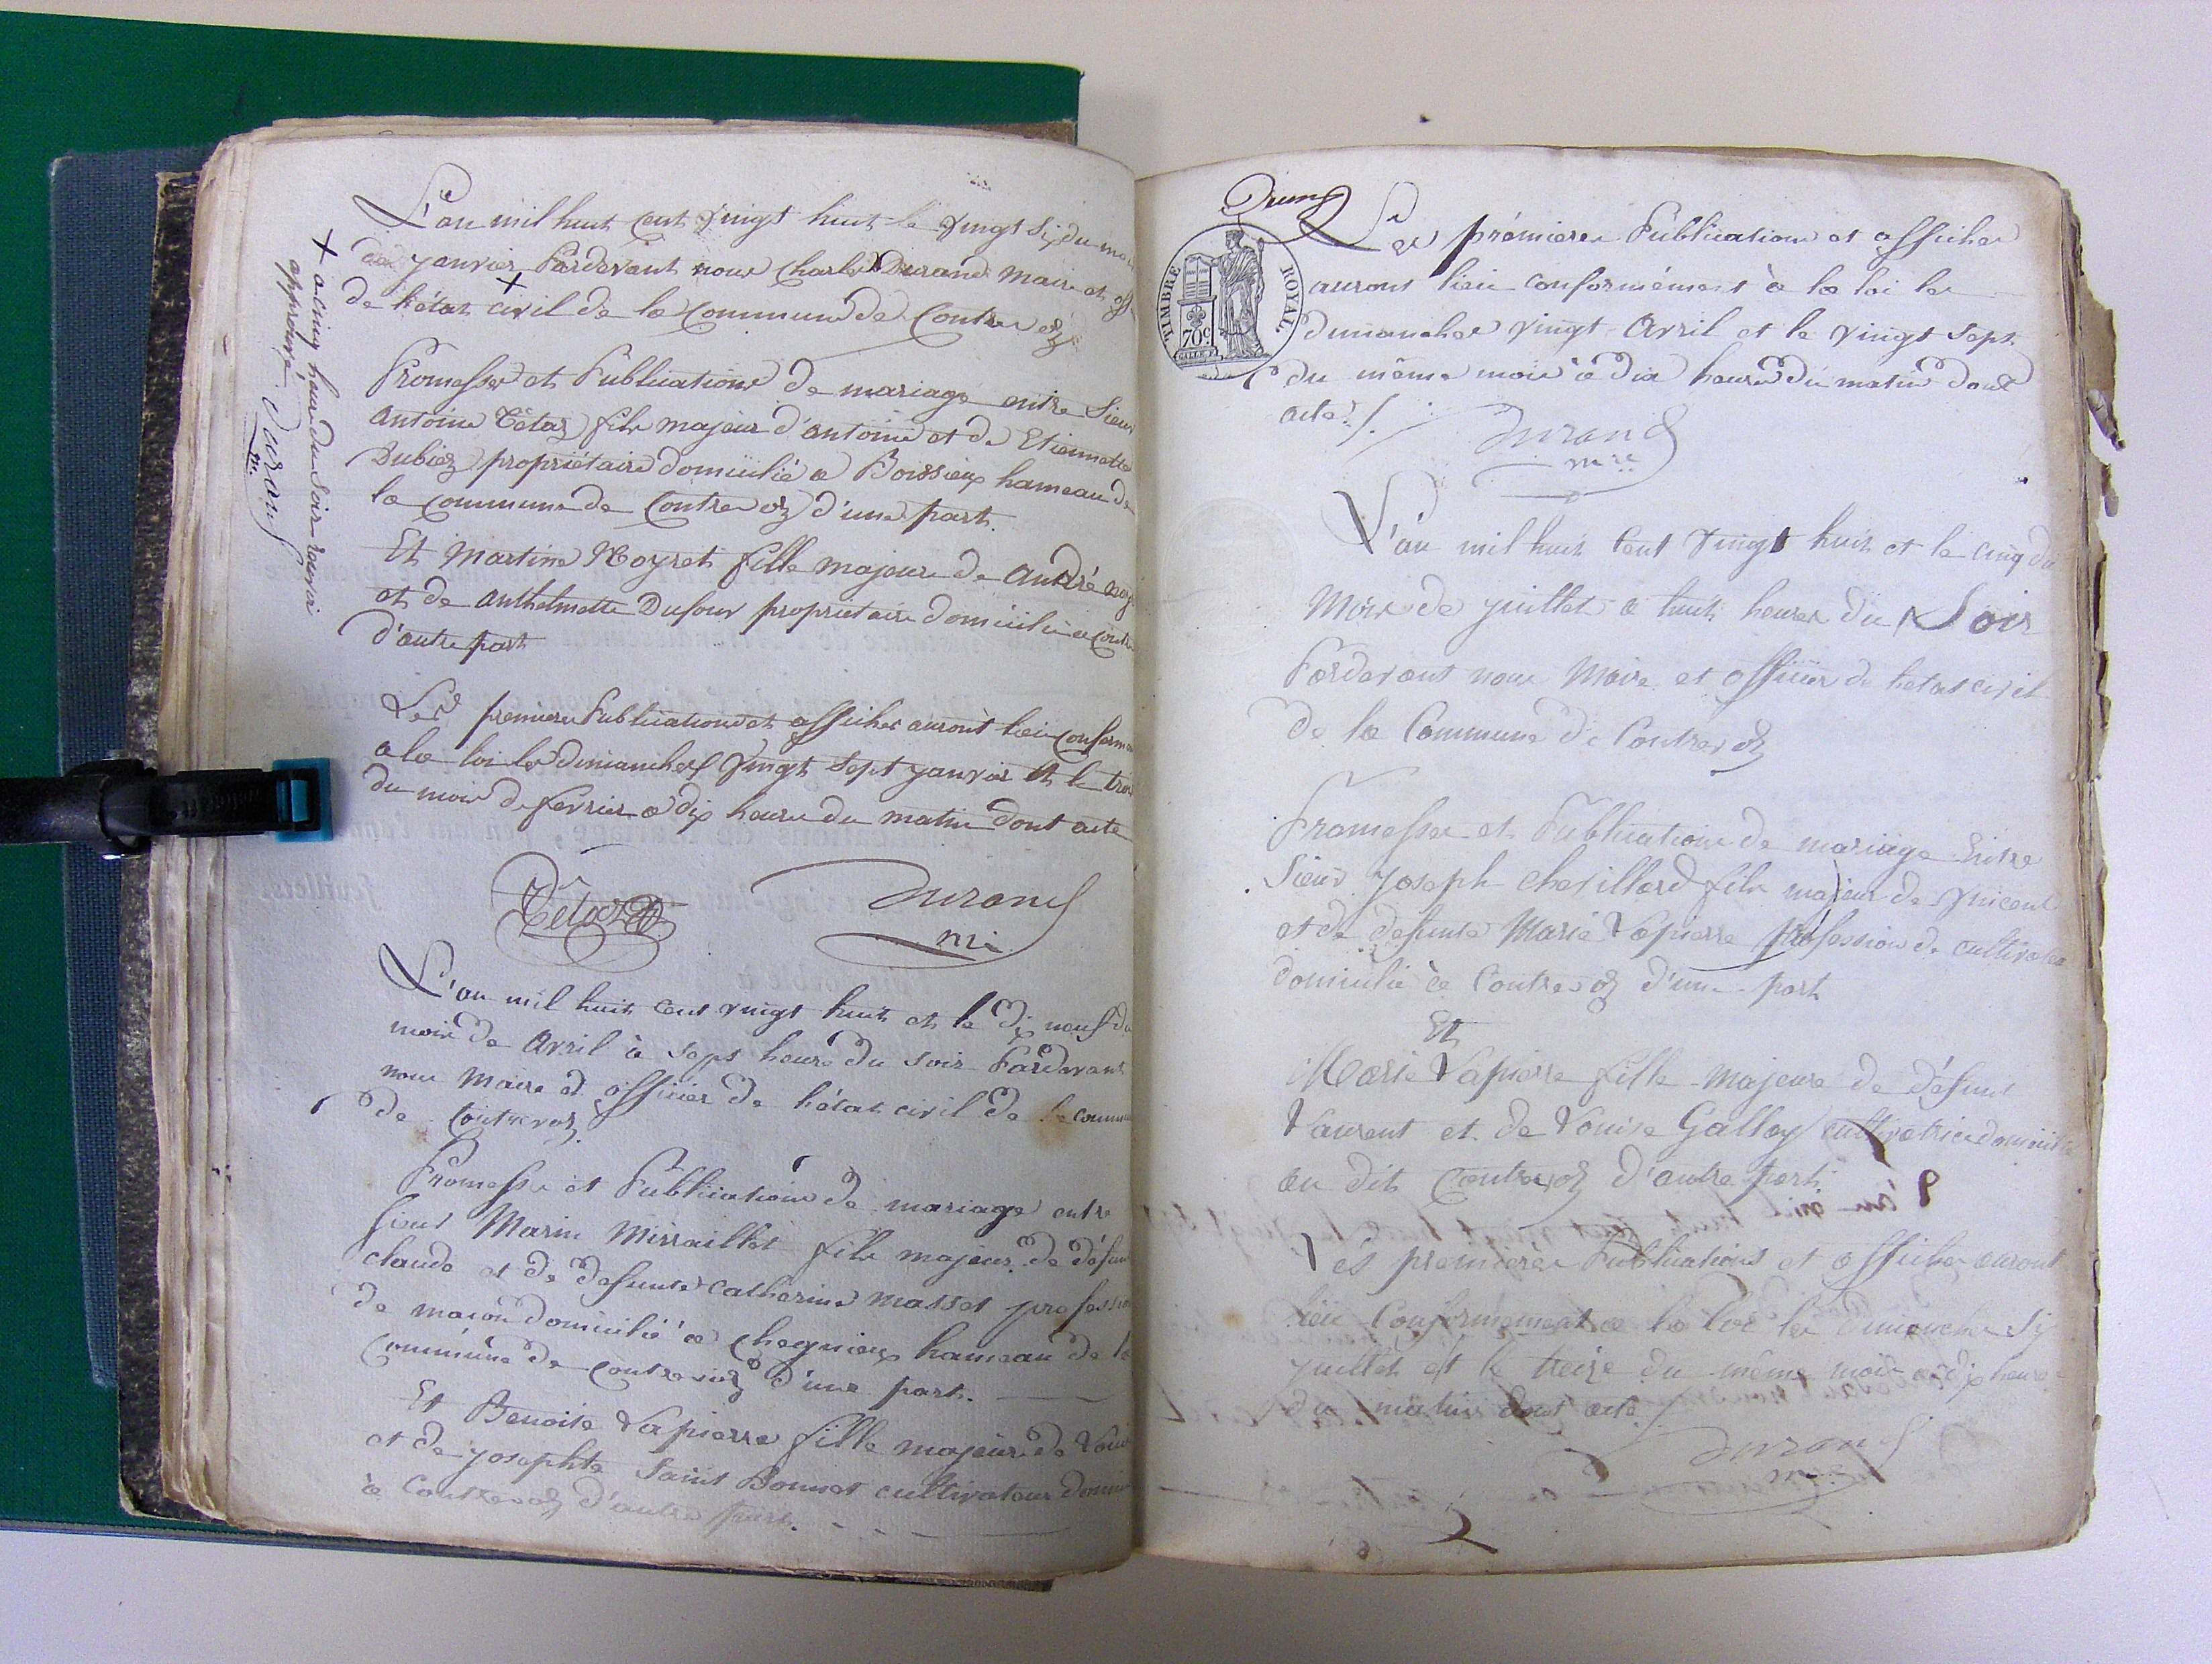 L'an mil huit cent vingt huit le vingt six du mois
de janvier Pardevant nous Charles Durand Maire et off
de l'état civil de la Commune de Contrevoz
Promesses et Publications de mariage entre Sieur
Antoine Tétaz fils majeur d'antoine et de Etiennette
Dubiez propriétaire domicilié a Boissieux hameau de
la commune de Contrevoz d'une part.
Et Martine Noyret fille majeure de André noy
et de anthelmette Dufour propriétaire domiciliée a contre
d'autre part
Les premieres Publications et affiches auront lieu conform
a la loi les dimanches vingt sept janvier et le trois
du mois de fevrier a dix heure du matin dont acte
Tétaz
Durand
m.re
x a cinq heure du soir renvoi
approuvé. Durand
m.re
L'an mil huit cent vingt huit et le dix neuf du
mois de Avril à sept heure du soir Pardevant
nous Maire et officier de l'état civil de la commune
de Contrevoz
Promesse et Publications de mariage entre
sieur Marin Mirraillet fils majeur de défunt
claude et de defunte Catherine masset profession
de maçon domicilié à Chegnieux hameau de la
Commune de Contrevoz d'une part.
Et Benoite Lapierre fille majeure de Louis
et de josephte Saint Bonnet cultivateur domici
à Contrevoz d'autre part.
TIMBRE ROYAL
70c
Les prémieres Publications et affiches
auront lieu conformément à la loi les
dimanches vingt Avril et le vingt sept
du même mois à dix heures du matin dont
acte ./.
Durand
m.re
L'an mil huit Cent Vingt huit et le cinq du
Mois de juillet a huit heures du Soir
Pardevant nous Maire et officier de l'etat civil
de la Commune de Contrevoz
Promesses et Publications de mariage Entre
Sieur Joseph Chevillard fils majeur de Vincent
et de defunte Marie Lapierre profession de cultivateur
domicilié à Contrevoz d'une part
Et
Marie Lapierre fille majeure de défunt
Laurent et de Louise Galloy cultivatrice domicilié
au dit Contrevoz d'autre part.
Les premieres Publications et affiches auront
lieu Conformement a la loi les dimanches six
juillet et le treize du même mois à dix heures
du matin dont acte ./.
Durand
m.re